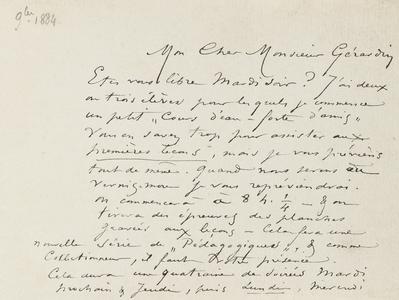 9bre 1884
Mon Cher Monsieur Gérardin
Etes vous libre Mardi soir ? J'ai deux
ou trois élèves pour lesquels je commence
un petit "Cours d'eau-forte d'amis"
Vous en savez trop pour assister aux
premières leçons, mais je vous préviens
tout de même. Quand nous serons au
vernis mou je vous repréviendrai.
on commencera à 8 h. 1/4 - & on
tirera des épreuves des planches
gravées aux leçons - Cela fera une
nouvelle série de "Pédagogiques", & comme
Collectionneur, il faut votre présence.
Cela dura une quatraine de soirées Mardi
prochain & Jeudi, puis Lundi, Mercredi